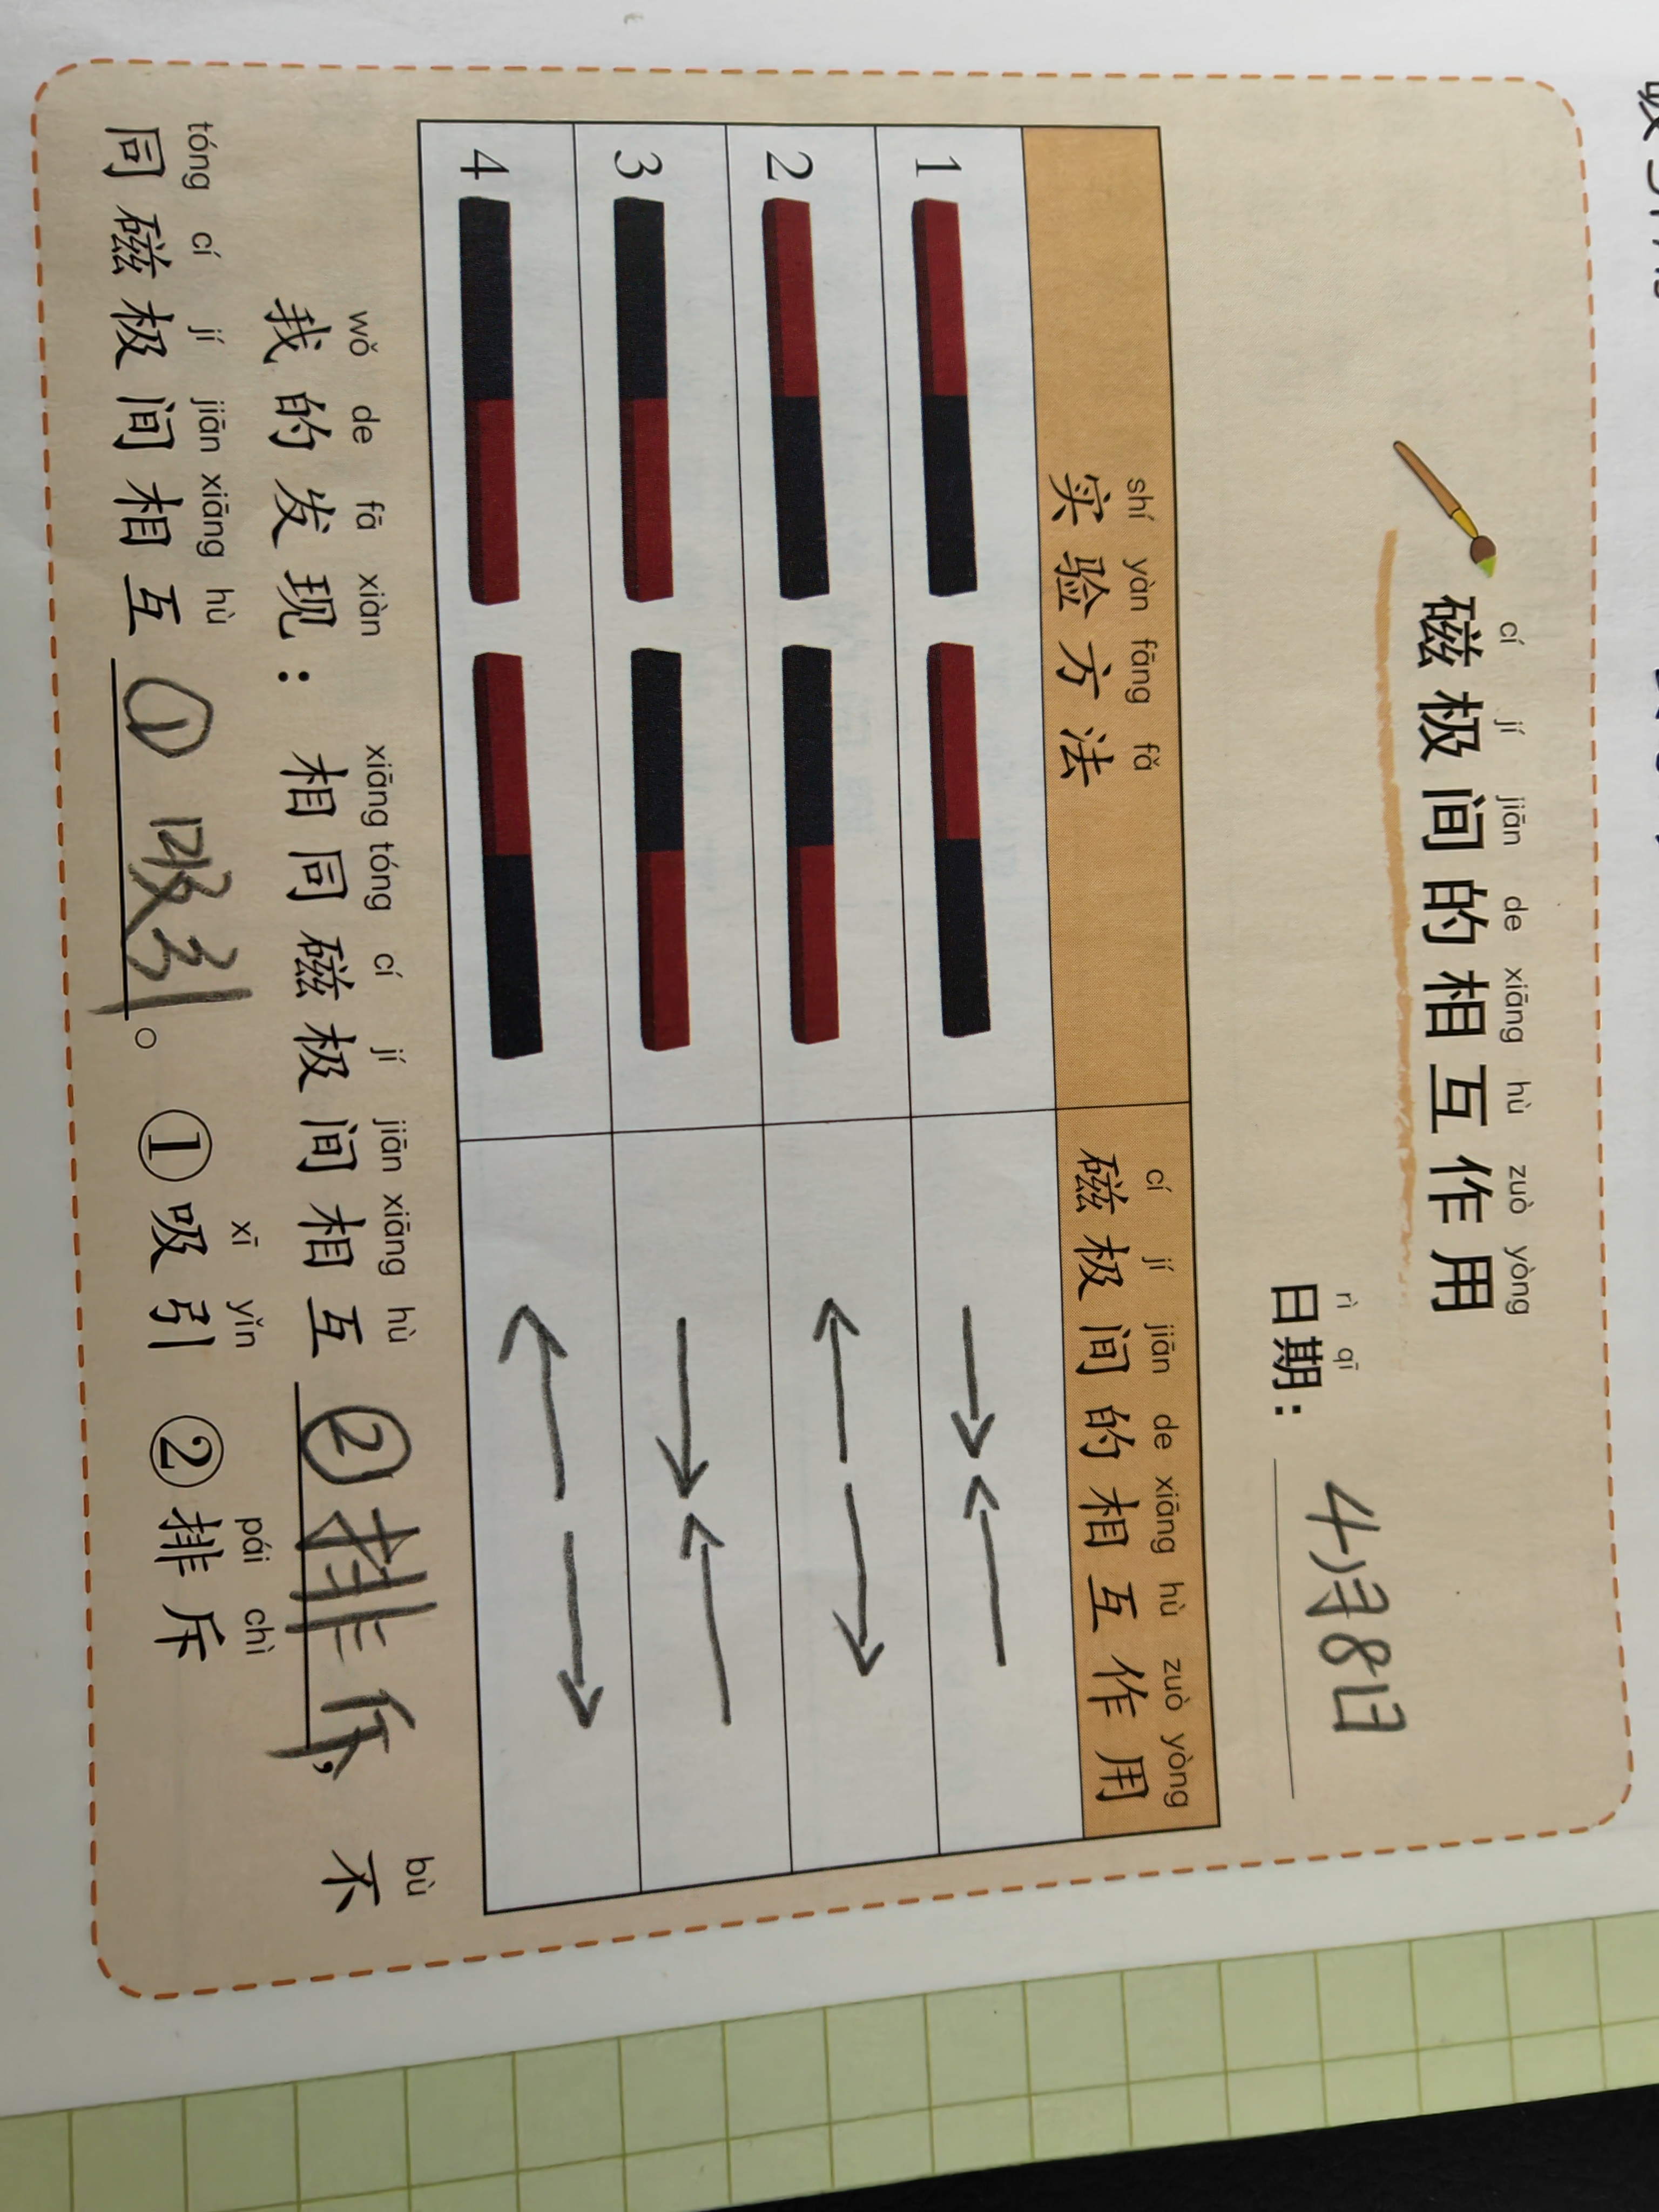 cí jí jiān de xiāng hù zuò yòng
磁极间的相互作用
rì qī
日期： 4月8日
shí yàn fāng fǎ cí jí jiān de xiāng hù zuò yòng
实验方法 磁极间的相互作用
1
2
3
4
wǒ de fā xiàn xiāng tóng cí jí jiān xiāng hù bù
我的发现：相同磁极间相互②排斥，不
tóng cí jí jiān xiāng hù xī yǐn pái chì
同磁极间相互①吸引。①吸引 ②排斥